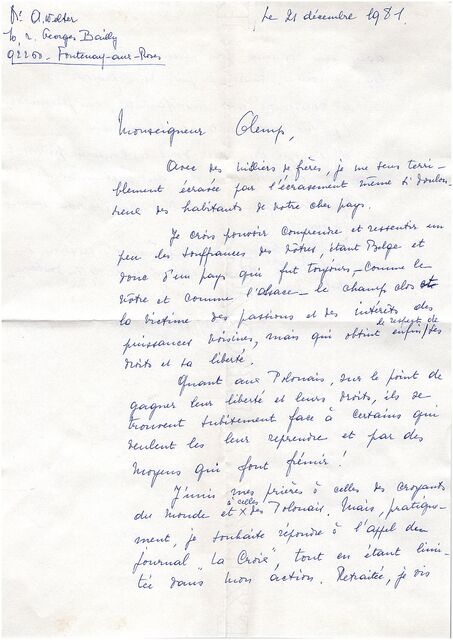 Dr A. Welter
10 r. Georges Bailly
92260 - Fontenay-aux-Roses
Le 21 décembre 1981.
Monseigneur Glemp,
Avec des milliers de frères, je me sens terri-
blement écrasée par l'écrasement même si doulou-
reux des habitants de votre cher pays.
Je crois pouvoir comprendre et ressentir un
peu les souffrances des vôtres, étant Belge et
donc d'un pays qui fut toujours - comme le
vôtre et comme l'Alsace - le champ clos et
la victime des passions et des intérêts des
puissances voisines, mais qui obtint enfin le respect de ses
droits et sa liberté.
Quant aux Polonais, sur le point de
gagner leur liberté et leurs droits, ils se
trouvent subitement face à certains qui
veulent les leur reprendre et par des
moyens qui font frémir !
J'unis mes prières à celles des croyants
du monde et à celles des Polonais. Mais, pratique-
ment, je souhaite répondre à l'appel du
journal "La Croix", tout en étant limi-
tée dans mon action. Retraitée, je vis